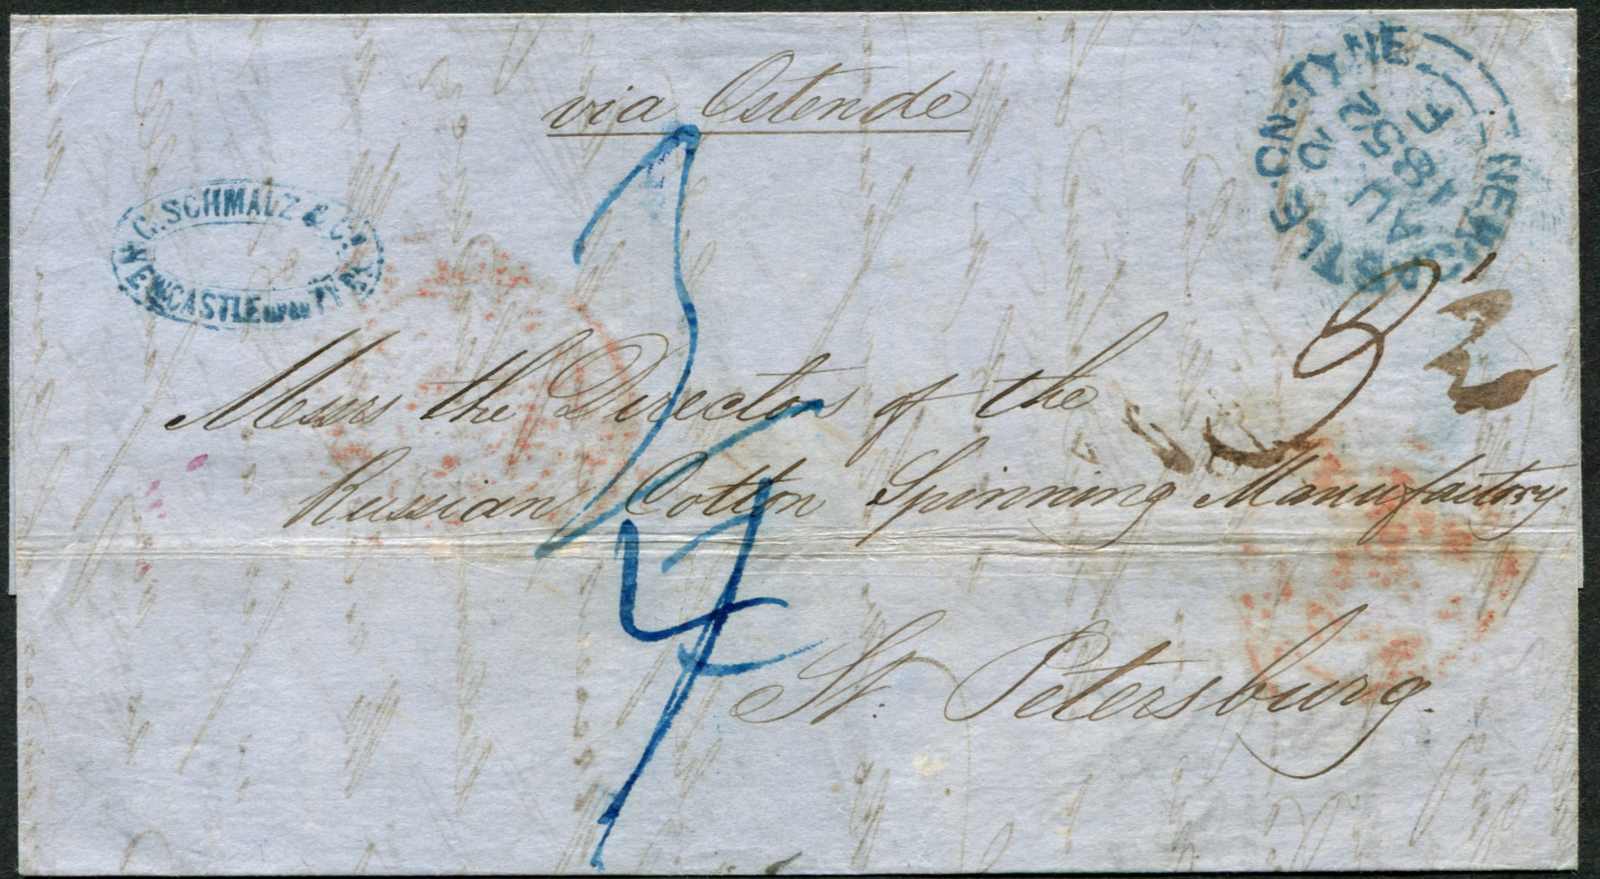 via Ostende
C. SCHMALZ & Co.
NEWCASTLE UPON TYNE
NEWCASTLE-ON-TYNE
AU
1852
F
Messrs the Directors of the
Russian Cotton Spinning Manufactory
St. Petersburg.